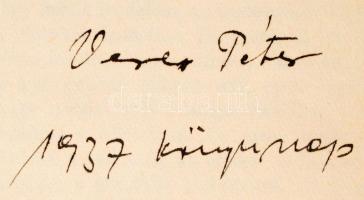 Veres Péter
darabanth
1937 könyvnap